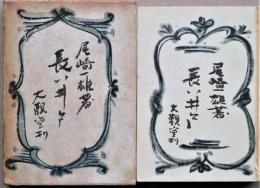 尾崎一雄著
長い井戸
大観堂刊
尾崎一雄著
長い井戸
大観堂刊